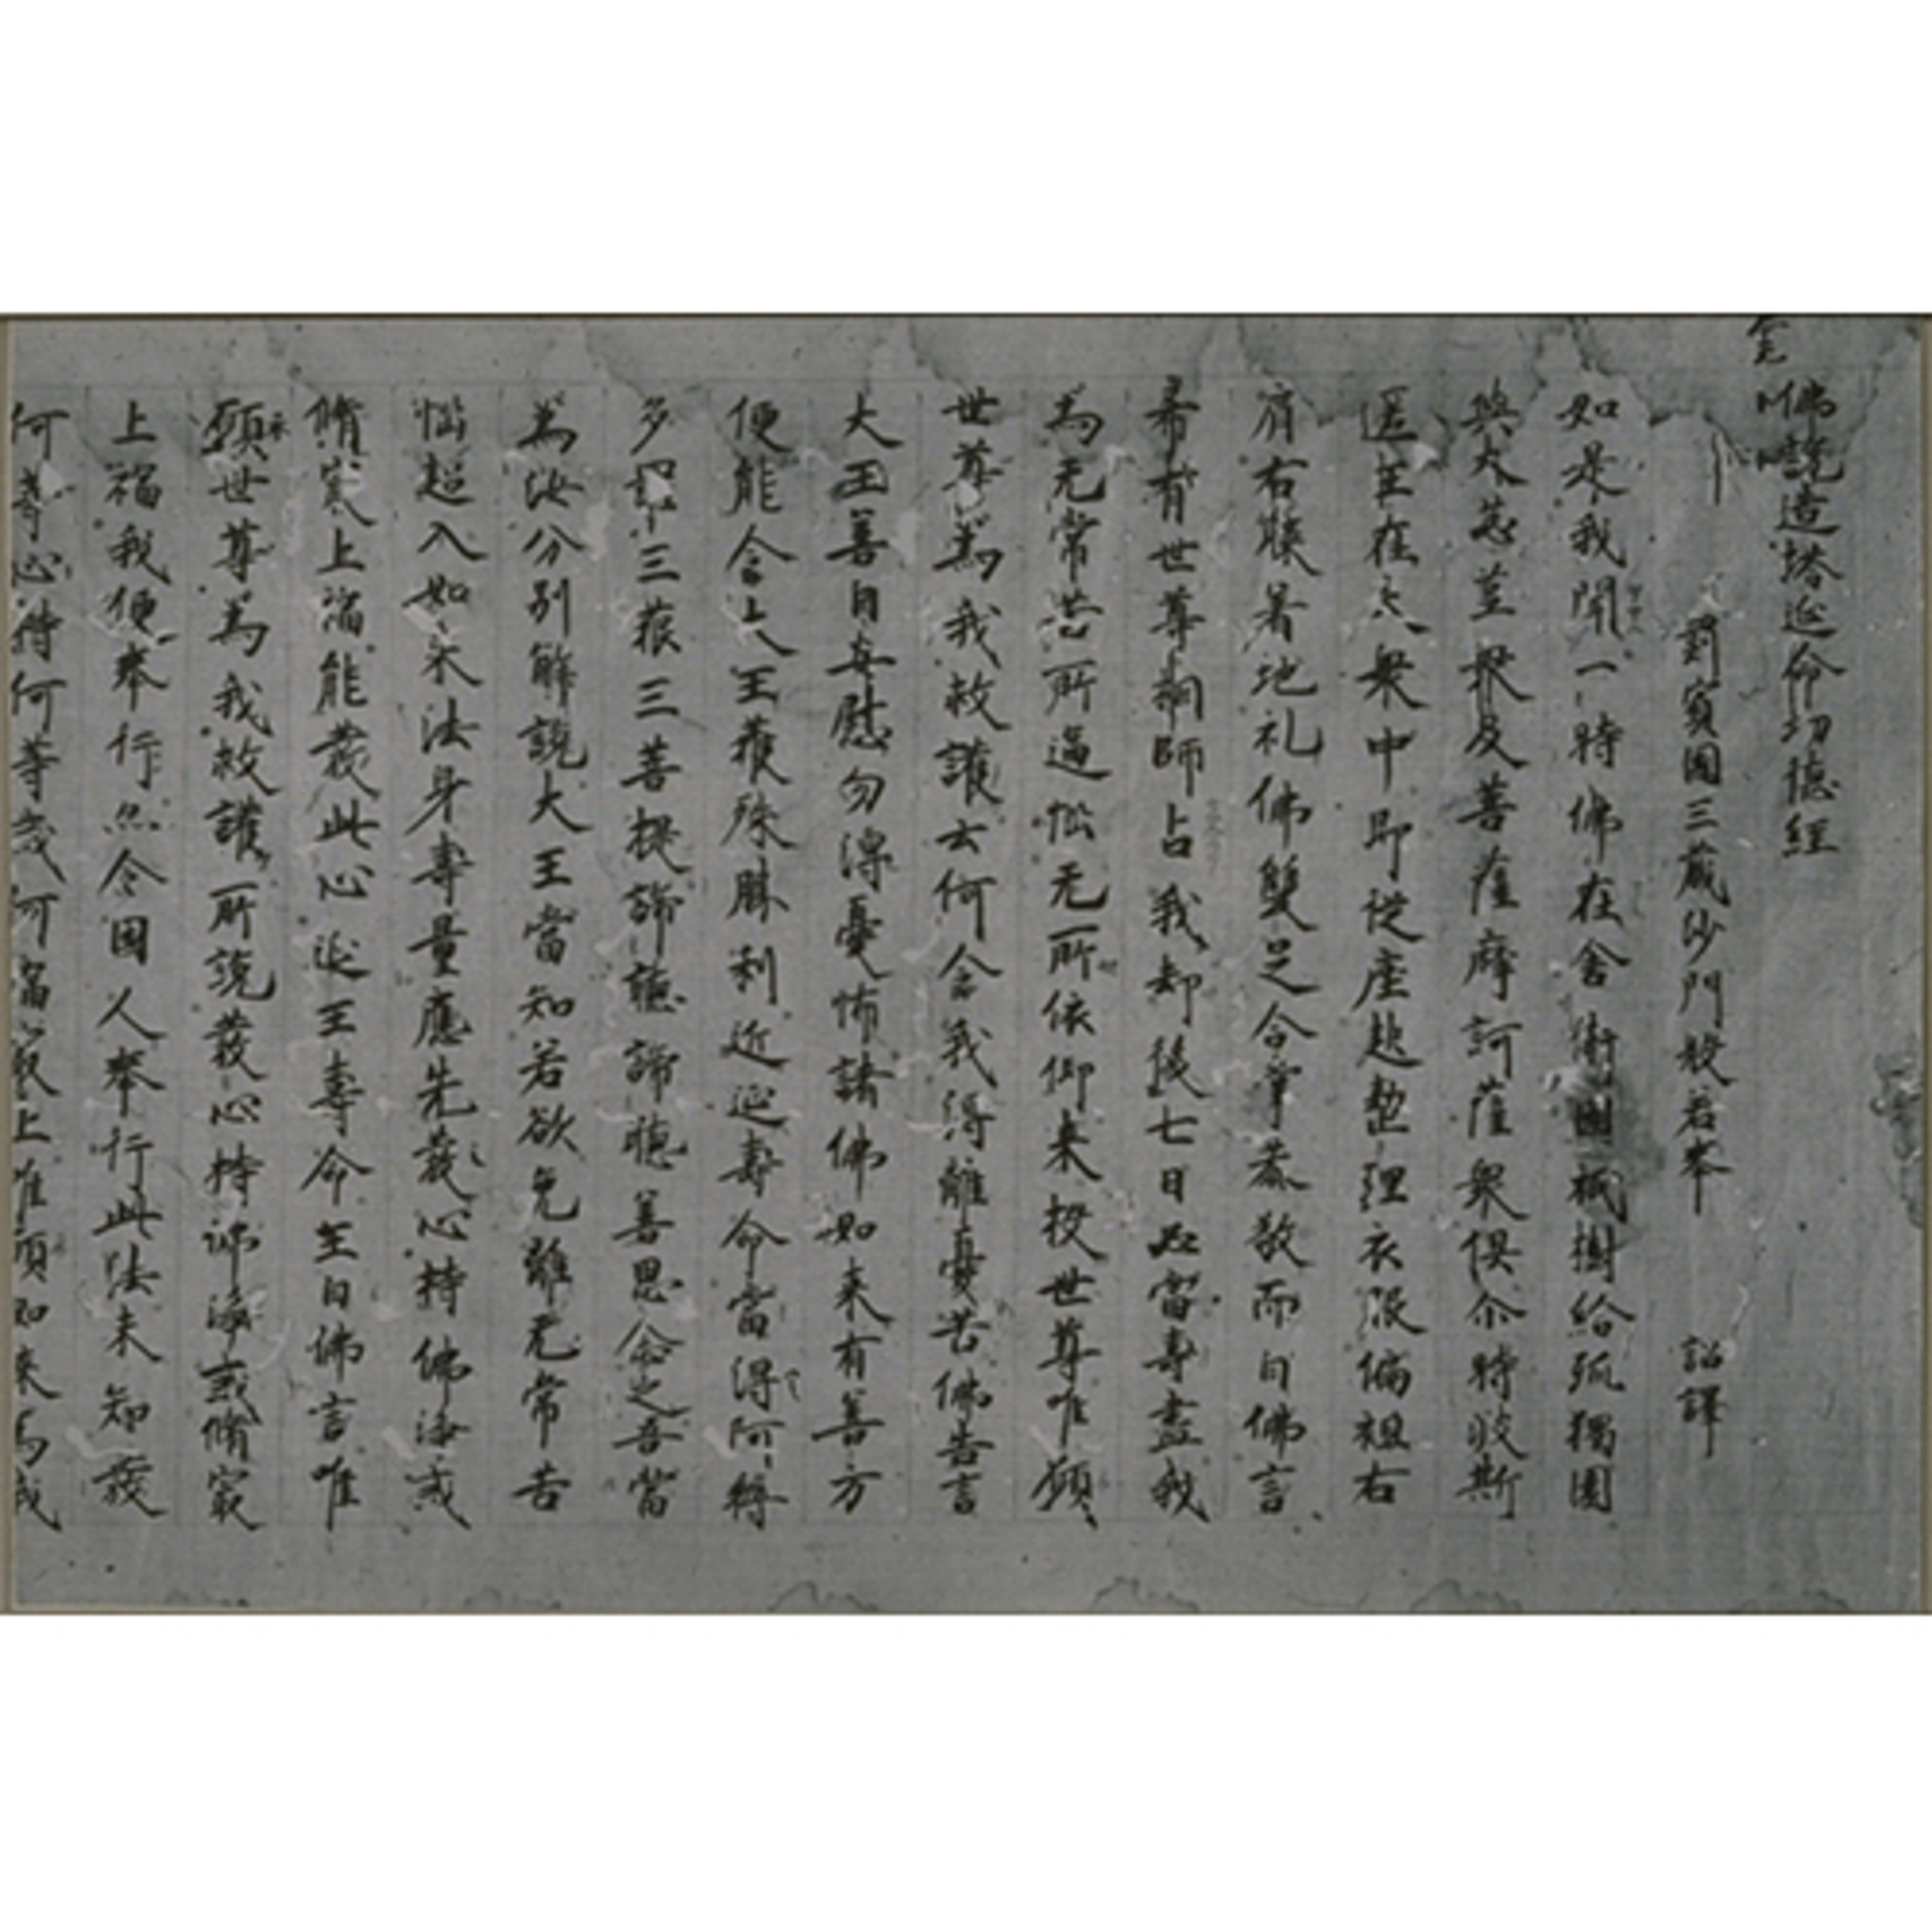 佛說造塔延命功德經
罽賓國三藏沙門般若奉 詔譯
如是我聞一時佛在舍衛國祇樹給孤獨園
與大苾芻衆及菩薩摩訶薩衆俱尒時波斯
匿王在大衆中即從座起整理衣服偏袒右
肩右膝著地礼佛雙足合掌恭敬而白佛言
希有世尊相師占我却後七日必當壽盡我
為无常苦所逼忪无所依仰来投世尊唯願
世尊為我救護云何令我得離憂苦佛告言
大王善自安慰勿得憂怖諸佛如来有善方
便能令大王獲殊勝利近延壽命當得阿耨
多羅三藐三菩提諦聽諦聽善思念之吾當
為汝分別解說大王當知若欲免離无常苦
惱超入如来法身壽量應先發心持佛淨戒
脩冣上福能發此心延王壽命王白佛言唯
願世尊為我救護所說發心持諸淨戒脩冣
上福我便奉行亦令國人奉行此法未知發
何等心持何等戒何福冣上唯願如来為我